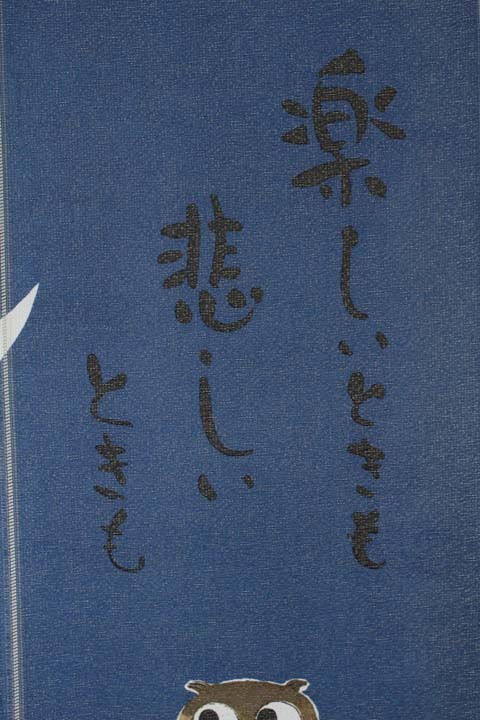 楽しいときも
悲しい
ときも